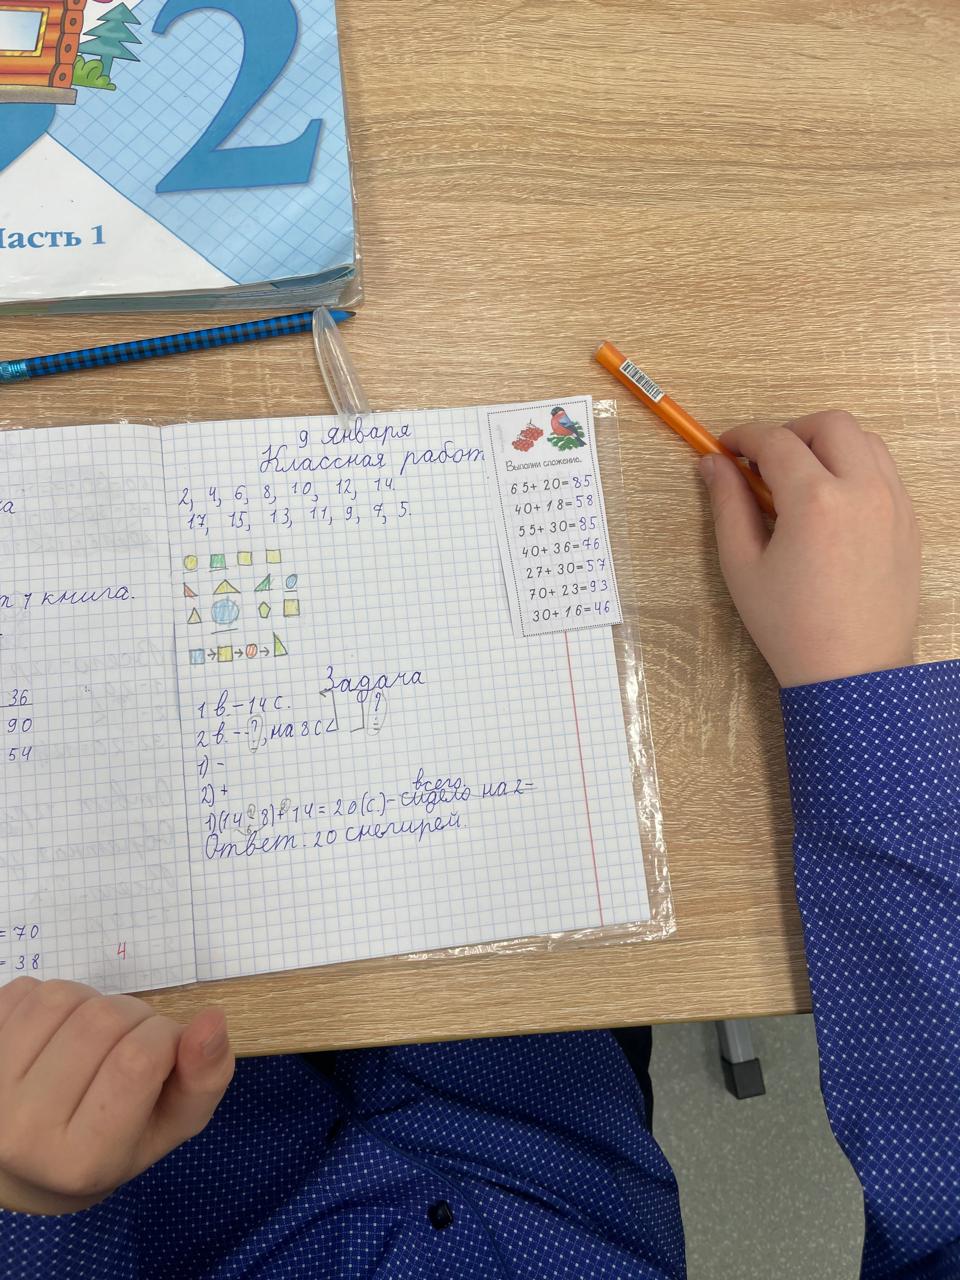 2
Часть 1
36
90
54
т 7 книга.
= 70
= 38
4
9 января
Классная работ
2, 4, 6, 8, 10, 12, 14.
17, 15, 13, 11, 9, 7, 5.
Задача
1 в. - 14 с.
2 в. - ?, на 8 с < ?
1) -
2) +
всего
1) (14 - 8) + 14 = 20 (с.) - сидело на 2-
Ответ. 20 снегирей.
Выполни сложение.
65+ 20= 85
40+ 18= 58
55+ 30= 85
40+ 36= 76
27+ 30= 57
70+ 23= 93
30+ 16= 46